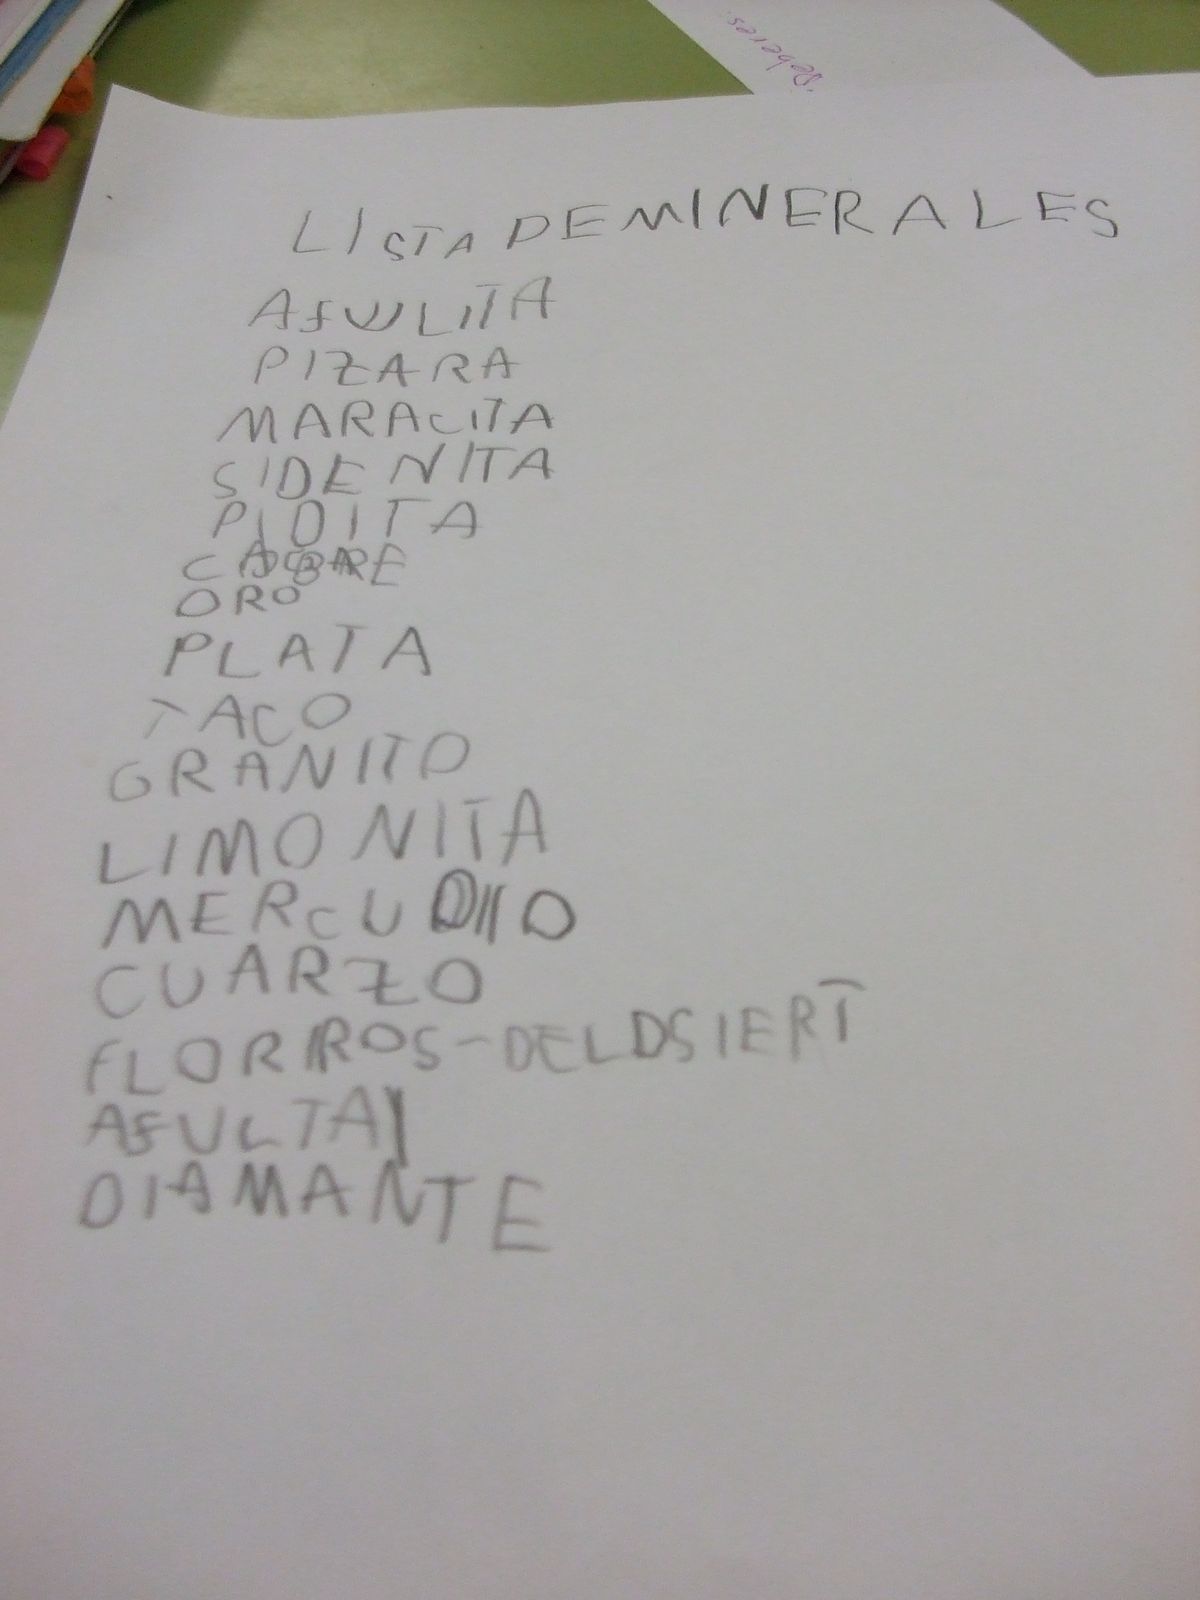 Deberes.
LISTA DE MINERALES
AFULITA
PIZARA
MARACITA
SIDENITA
PIDITA
ORO
PLATA
TACO
GRANITO
LIMONITA
CUARZO
FLORROS-DELDSIERT
AFULTA
DIAMANTE